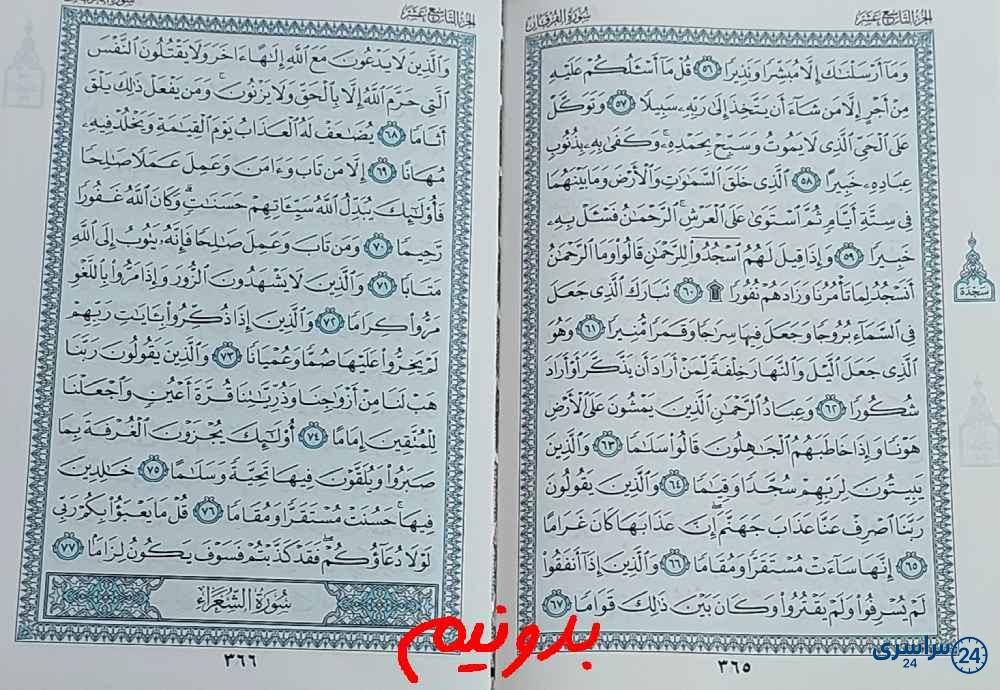 الجزء التاسع عشر
سورة الفرقان
وَمَآ أَرْسَلْنَٰكَ إِلَّا مُبَشِّرًا وَنَذِيرًا ٥٦ قُلْ مَآ أَسْـَٔلُكُمْ عَلَيْهِ
مِنْ أَجْرٍ إِلَّا مَن شَآءَ أَن يَتَّخِذَ إِلَىٰ رَبِّهِۦ سَبِيلًا ٥٧ وَتَوَكَّلْ
عَلَى ٱلْحَىِّ ٱلَّذِى لَا يَمُوتُ وَسَبِّحْ بِحَمْدِهِۦ ۚ وَكَفَىٰ بِهِۦ بِذُنُوبِ
عِبَادِهِۦ خَبِيرًا ٥٨ ٱلَّذِى خَلَقَ ٱلسَّمَٰوَٰتِ وَٱلْأَرْضَ وَمَا بَيْنَهُمَا
فِى سِتَّةِ أَيَّامٍ ثُمَّ ٱسْتَوَىٰ عَلَى ٱلْعَرْشِ ۚ ٱلرَّحْمَٰنُ فَسْـَٔلْ بِهِۦ
خَبِيرًا ٥٩ وَإِذَا قِيلَ لَهُمُ ٱسْجُدُوا۟ لِلرَّحْمَٰنِ قَالُوا۟ وَمَا ٱلرَّحْمَٰنُ
أَنَسْجُدُ لِمَا تَأْمُرُنَا وَزَادَهُمْ نُفُورًا ۩ ٦٠ تَبَارَكَ ٱلَّذِى جَعَلَ
فِى ٱلسَّمَآءِ بُرُوجًا وَجَعَلَ فِيهَا سِرَٰجًا وَقَمَرًا مُّنِيرًا ٦١ وَهُوَ
ٱلَّذِى جَعَلَ ٱلَّيْلَ وَٱلنَّهَارَ خِلْفَةً لِّمَنْ أَرَادَ أَن يَذَّكَّرَ أَوْ أَرَادَ
شُكُورًا ٦٢ وَعِبَادُ ٱلرَّحْمَٰنِ ٱلَّذِينَ يَمْشُونَ عَلَى ٱلْأَرْضِ
هَوْنًا وَإِذَا خَاطَبَهُمُ ٱلْجَٰهِلُونَ قَالُوا۟ سَلَٰمًا ٦٣ وَٱلَّذِينَ
يَبِيتُونَ لِرَبِّهِمْ سُجَّدًا وَقِيَٰمًا ٦٤ وَٱلَّذِينَ يَقُولُونَ
رَبَّنَا ٱصْرِفْ عَنَّا عَذَابَ جَهَنَّمَ ۖ إِنَّ عَذَابَهَا كَانَ غَرَامًا
٦٥ إِنَّهَا سَآءَتْ مُسْتَقَرًّا وَمُقَامًا ٦٦ وَٱلَّذِينَ إِذَآ أَنفَقُوا۟
لَمْ يُسْرِفُوا۟ وَلَمْ يَقْتُرُوا۟ وَكَانَ بَيْنَ ذَٰلِكَ قَوَامًا ٦٧
سجدة
٣٦٥
الجزء التاسع عشر
وَٱلَّذِينَ لَا يَدْعُونَ مَعَ ٱللَّهِ إِلَٰهًا ءَاخَرَ وَلَا يَقْتُلُونَ ٱلنَّفْسَ
ٱلَّتِى حَرَّمَ ٱللَّهُ إِلَّا بِٱلْحَقِّ وَلَا يَزْنُونَ ۚ وَمَن يَفْعَلْ ذَٰلِكَ يَلْقَ
أَثَامًا ٦٨ يُضَٰعَفْ لَهُ ٱلْعَذَابُ يَوْمَ ٱلْقِيَٰمَةِ وَيَخْلُدْ فِيهِۦ
مُهَانًا ٦٩ إِلَّا مَن تَابَ وَءَامَنَ وَعَمِلَ عَمَلًا صَٰلِحًا
فَأُو۟لَٰٓئِكَ يُبَدِّلُ ٱللَّهُ سَيِّـَٔاتِهِمْ حَسَنَٰتٍ ۗ وَكَانَ ٱللَّهُ غَفُورًا
رَّحِيمًا ٧٠ وَمَن تَابَ وَعَمِلَ صَٰلِحًا فَإِنَّهُۥ يَتُوبُ إِلَى ٱللَّهِ
مَتَابًا ٧١ وَٱلَّذِينَ لَا يَشْهَدُونَ ٱلزُّورَ وَإِذَا مَرُّوا۟ بِٱللَّغْوِ
مَرُّوا۟ كِرَامًا ٧٢ وَٱلَّذِينَ إِذَا ذُكِّرُوا۟ بِـَٔايَٰتِ رَبِّهِمْ
لَمْ يَخِرُّوا۟ عَلَيْهَا صُمًّا وَعُمْيَانًا ٧٣ وَٱلَّذِينَ يَقُولُونَ رَبَّنَا
هَبْ لَنَا مِنْ أَزْوَٰجِنَا وَذُرِّيَّٰتِنَا قُرَّةَ أَعْيُنٍ وَٱجْعَلْنَا
لِلْمُتَّقِينَ إِمَامًا ٧٤ أُو۟لَٰٓئِكَ يُجْزَوْنَ ٱلْغُرْفَةَ بِمَا
صَبَرُوا۟ وَيُلَقَّوْنَ فِيهَا تَحِيَّةً وَسَلَٰمًا ٧٥ خَٰلِدِينَ
فِيهَا ۚ حَسُنَتْ مُسْتَقَرًّا وَمُقَامًا ٧٦ قُلْ مَا يَعْبَؤُا۟ بِكُمْ رَبِّى
لَوْلَا دُعَآؤُكُمْ ۖ فَقَدْ كَذَّبْتُمْ فَسَوْفَ يَكُونُ لِزَامًۢا ٧٧
سُورَةُ الشُّعَرَاءِ
٣٦٦
بدونیم
سراسری 24
24